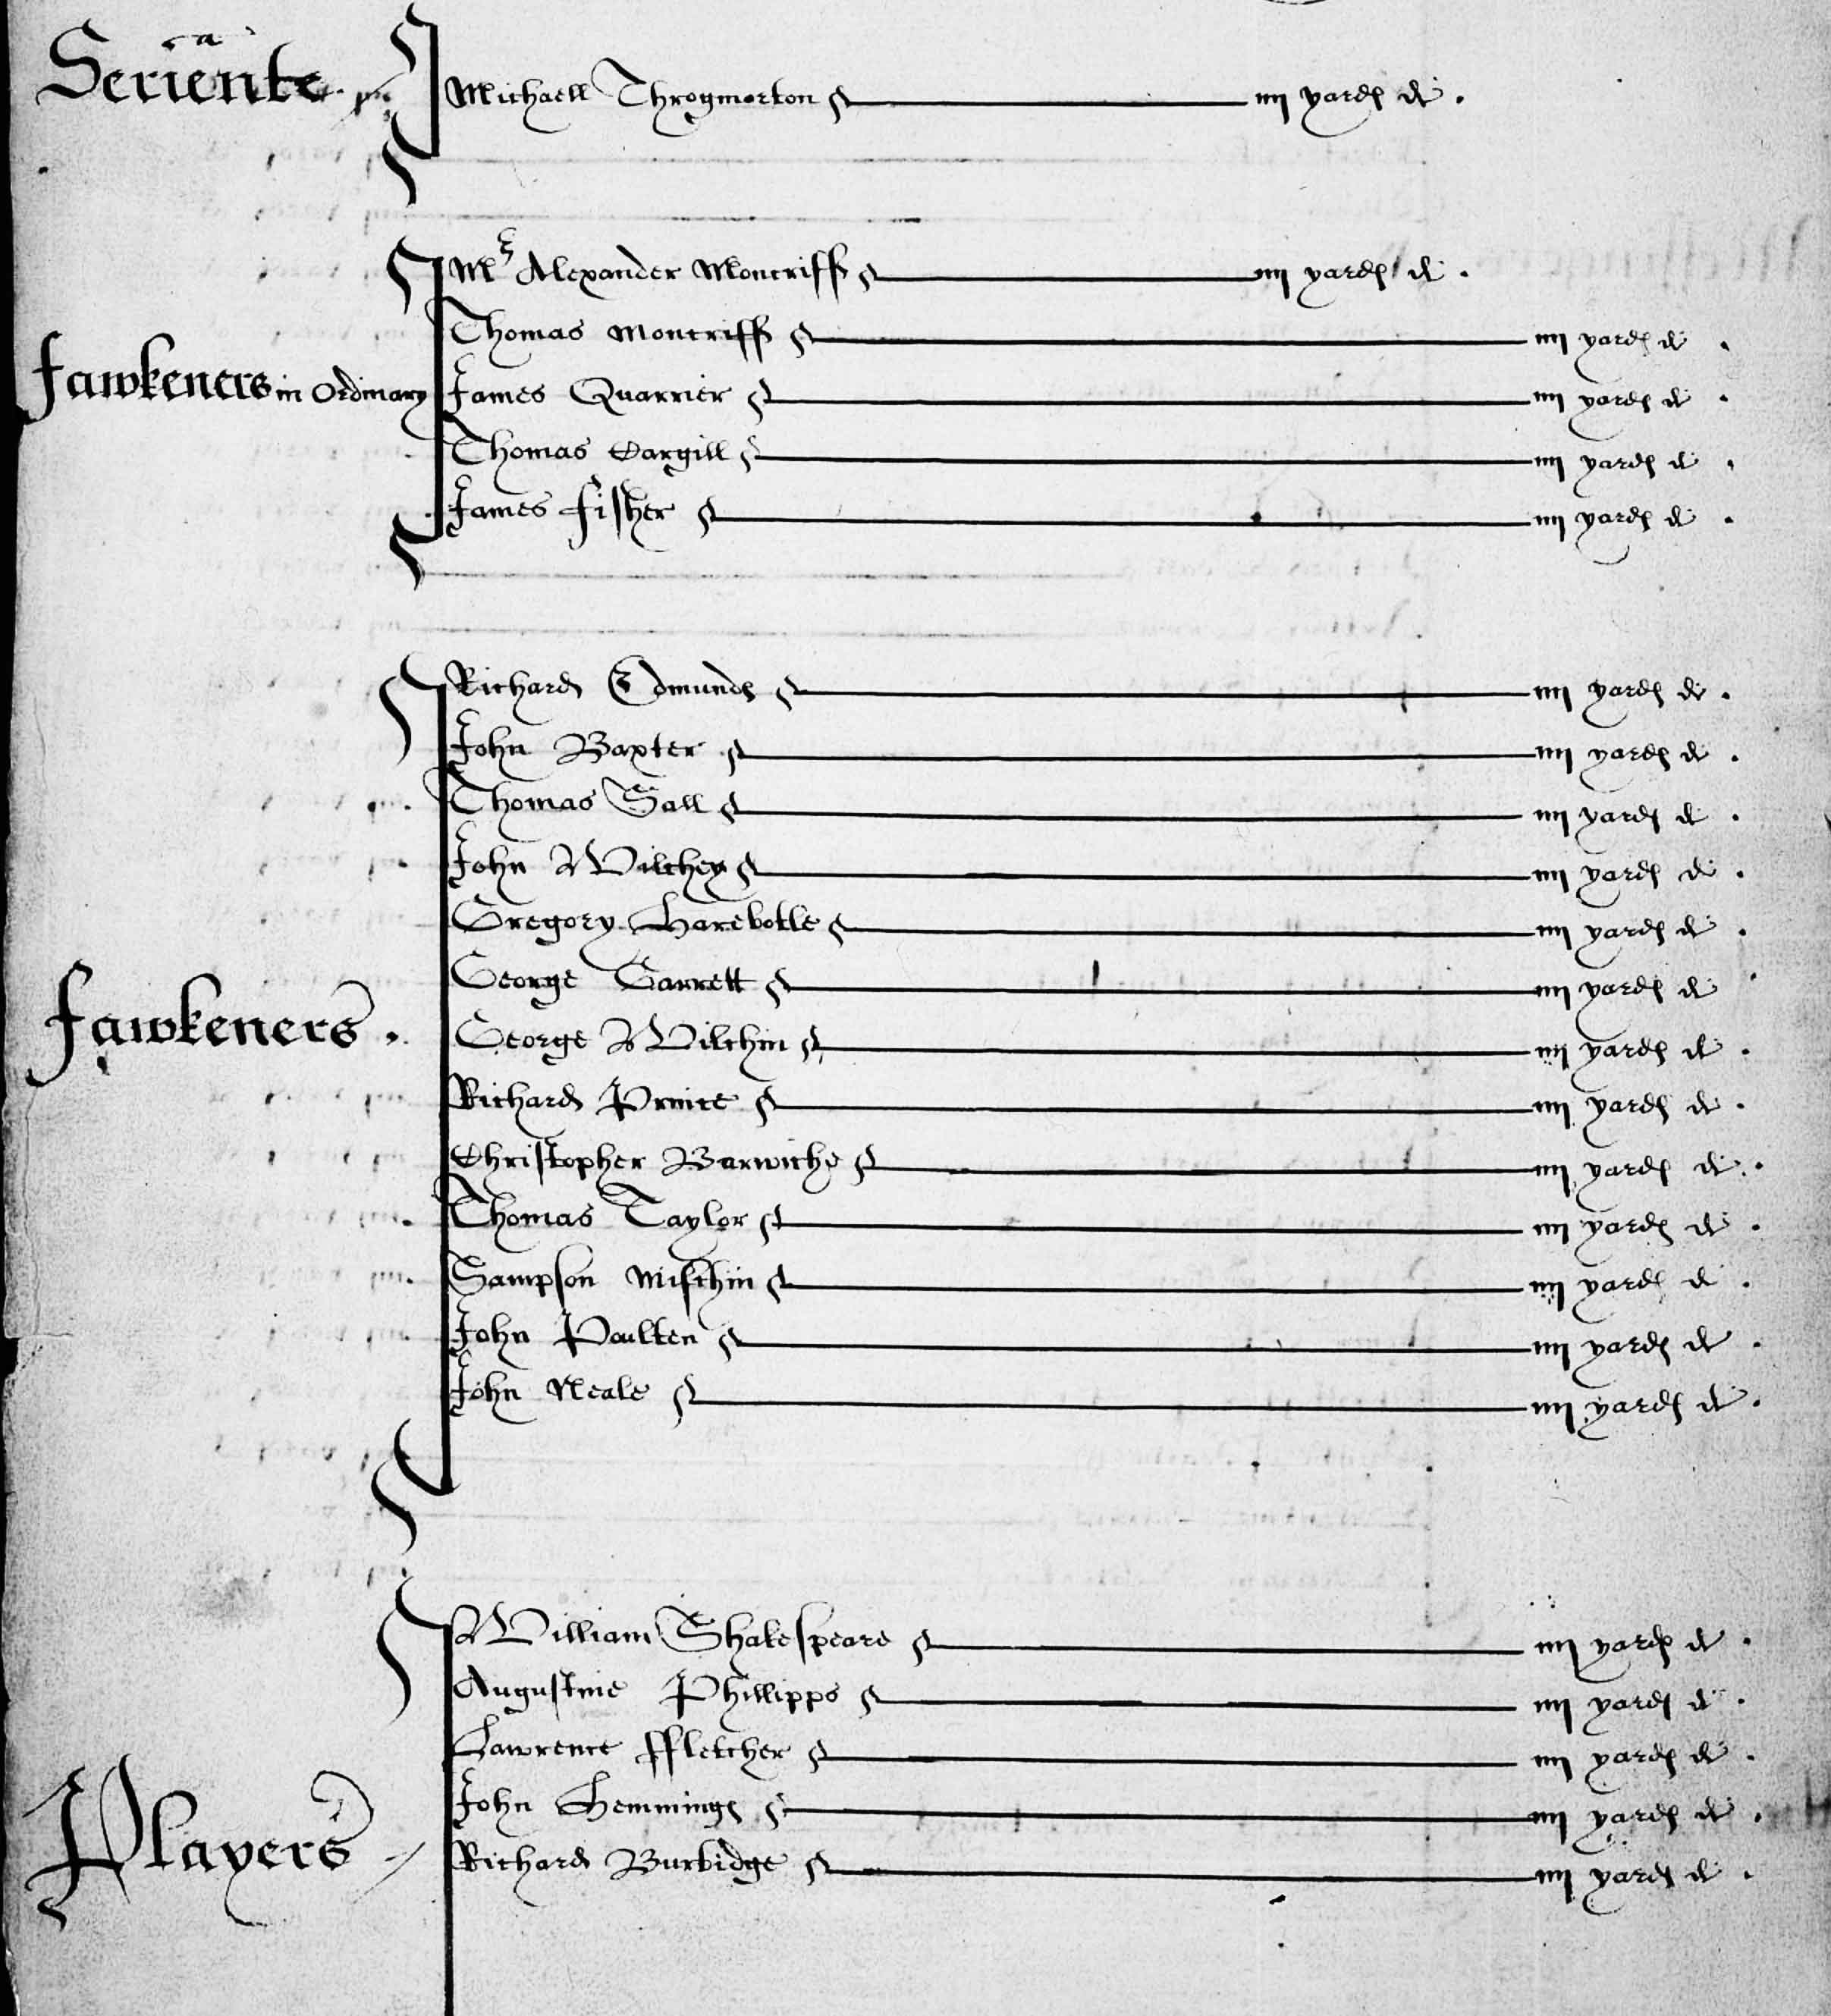 Seriente
Michaell Throgmorton iiij yardes di.
Mr Alexander Moncriff iiij yardes di.
Thomas Moncriff iiij yardes di.
Fawkeners in Ordinary James Quarrier iiij yardes di.
Thomas Cargill iiij yardes di.
James Fisher iiij yardes di.
Richard Edmundes iiij yardes di.
John Baxter iiij yardes di.
Thomas Sall iiij yardes di.
John Wilchey iiij yardes di.
Gregory Harebotle iiij yardes di.
George Garrett iiij yardes di
Fawkeners. George Wilchin iiij yardes di.
Richard Prince iiij yardes di.
Christopher Barwicke iiij yardes di.
Thomas Taylor iiij yardes di.
Sampson Mischin iiij yardes di.
John Poulten iiij yardes di.
John Neale iiij yardes di.
William Shakespeare iiij yardes di.
Augustine Phillipps iiij yardes di.
Lawrence ffletcher iiij yardes di.
John Hemminges iiij yardes di.
Players Richard Burbidge iiij yardes di.